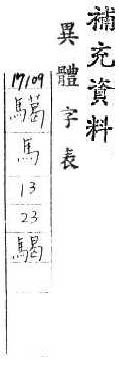 補充資料
異體字表
17109
⿰馬葛
馬
13
23
騔